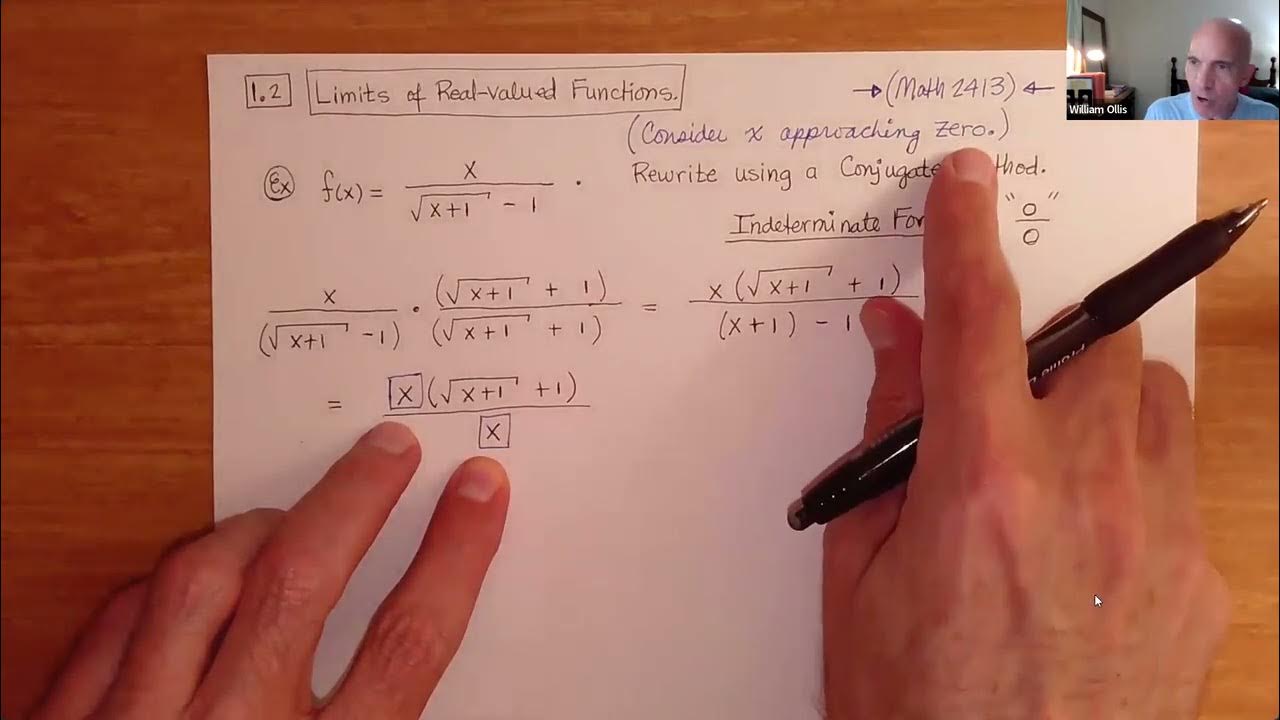 1.2 Limits of Real-valued Functions. →(Math 2413)←
William Ollis
(Consider x approaching zero.)
Ex f(x) = x / (√(x+1) - 1) . Rewrite using a Conjugate
Indeterminate "0/0"
x / (√(x+1) - 1) · (√(x+1) + 1) / (√(x+1) + 1) = x(√(x+1) + 1) / (x+1) - 1
= x(√(x+1) + 1) / x